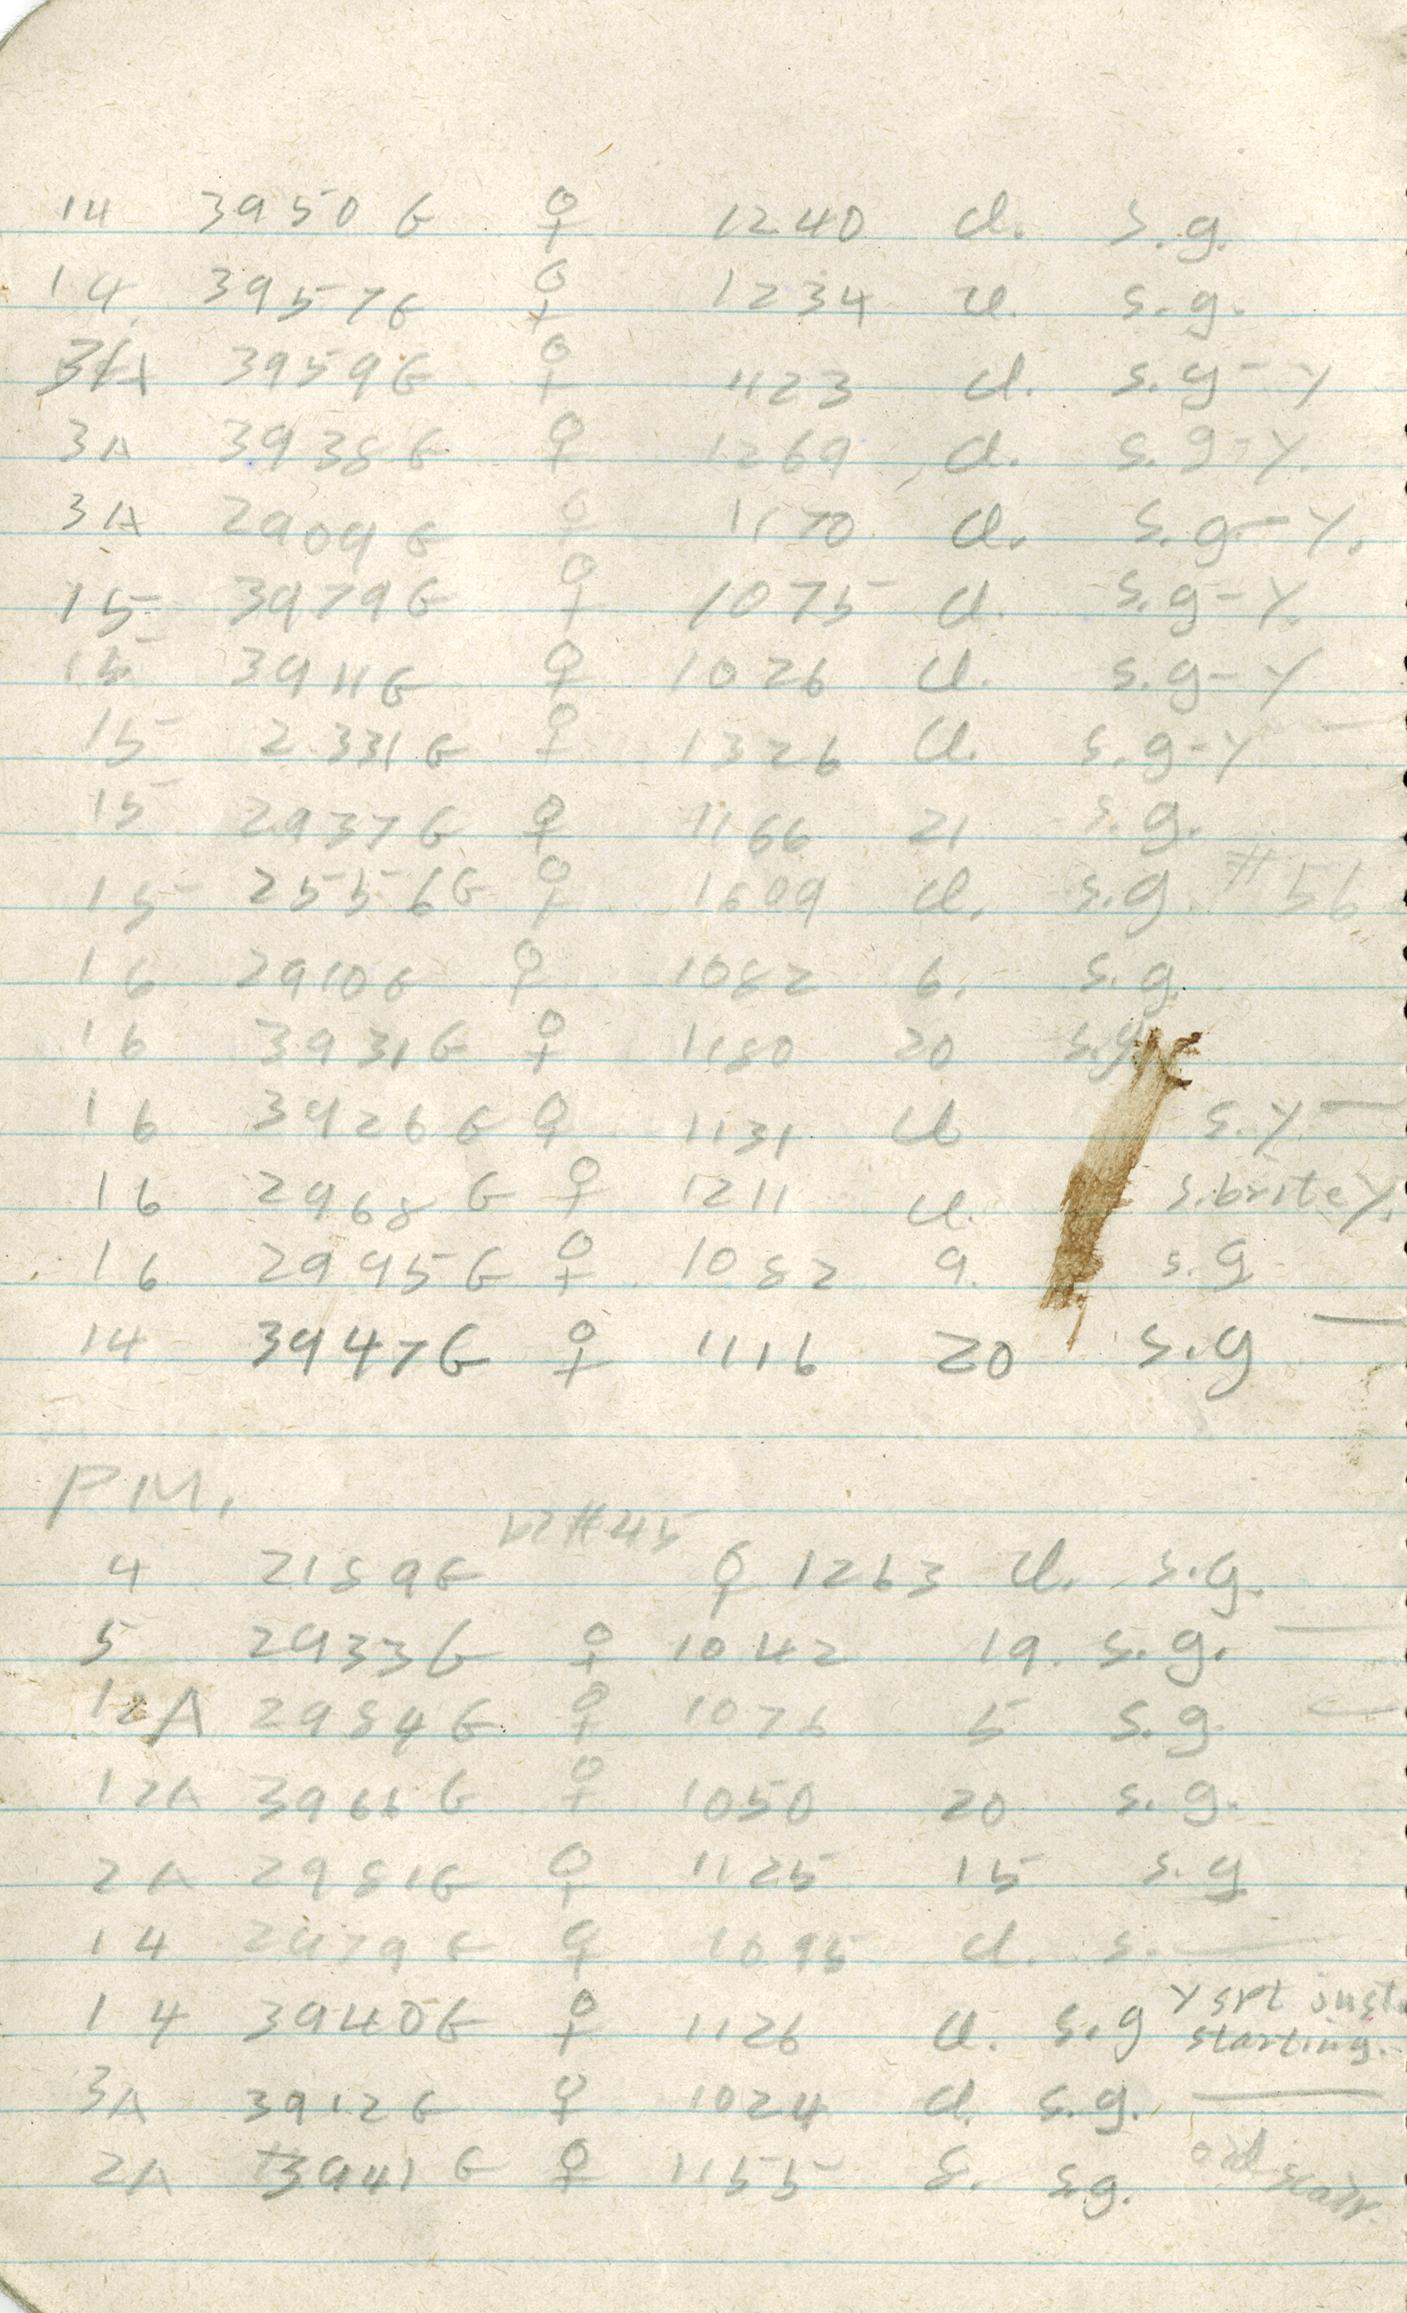 14 3950 G ♀ 1240 cl. s.g.
14 3957 G ♀ 1234 cl. s.g.
3A 3959 G ♀ 1123 cl. s.g-Y
3A 3938 G ♀ 1269 cl. s.g-Y.
3A 2909 G ♀ 1170 cl. s.g-Y.
15 3979 G ♀ 1075 cl. s.g-Y.
15 3911 G ♀ 1026 cl. s.g-Y
15 2331 G ♀ 1326 cl. s.g-Y
15 2937 G ♀ 1166 21 s.g.
15 2556 G ♀ 1609 cl. s.g #56
16 2910 G ♀ 1082 6. s.g.
16 3931 G ♀ 1180 20 s.g
16 3926 G ♀ 1131 cl s.y. —
16 2968 G ♀ 1211 cl. s.brite y.
16 2995 G ♀ 1082 9. s.g
14 3947 G ♀ 1116 20 s.g —
PM.
#45
4 2189 G ♀ 1263 cl. s.g.
5 2933 G ♀ 1042 19. s.g. —
12A 2984 G ♀ 1076 5 s.g.
12A 3966 G ♀ 1050 20 s.g.
2A 2981 G ♀ 1125 15 s.g
14 2979 G ♀ 1095 cl. s. —
14 3940 G ♀ 1126 cl. s.g Y just
starting.
3A 3912 G ♀ 1024 cl. s.g. —
2A 3941 G ♀ 1155 8. s.g. old